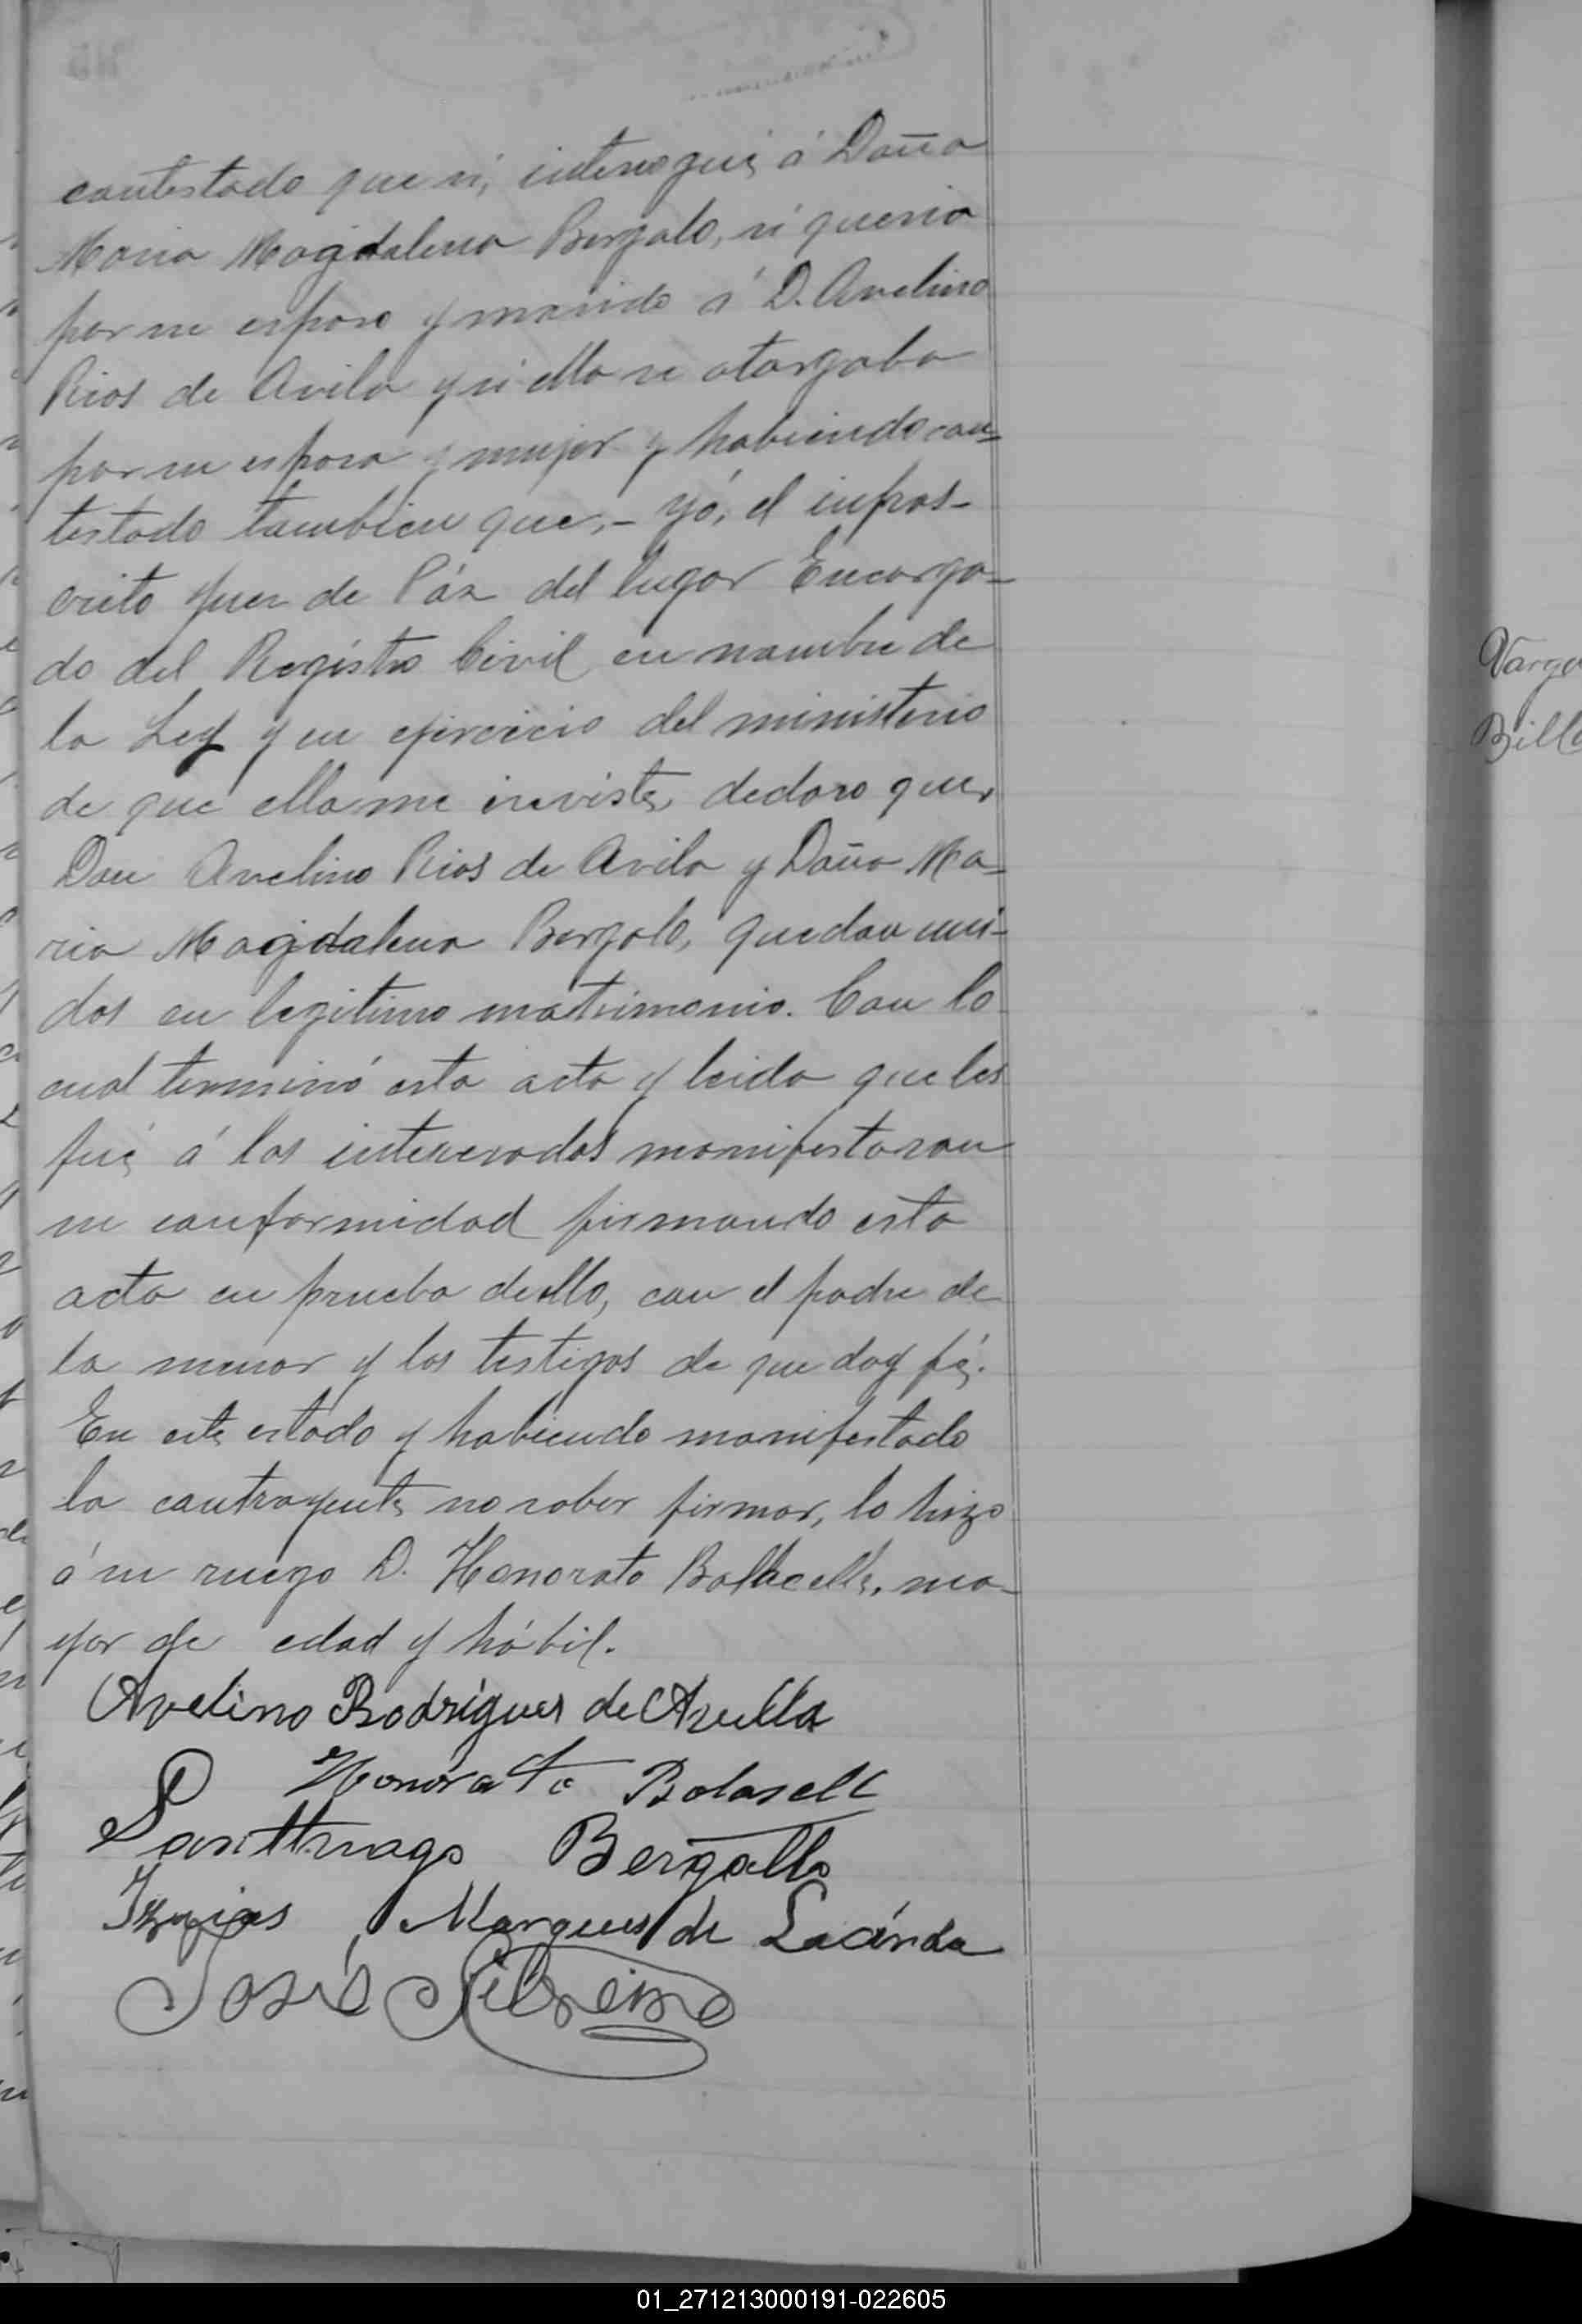 contestado que si, interrogué á Doña
Maria Magdalena Bergalo, si queria
por su esposo y marido á D. Avelino
Rios de Avila y si ella se otorgaba
por su esposa y mujer y habiendo con-
testado tambien que,- yó, el infras-
crito Juez de Páz del lugar Encarga-
do del Registro Civil en nombre de
la Ley y en ejercicio del ministerio
de que ella me inviste, declaro que,
Don Avelino Rios de Avila y Doña Ma-
ria Magdalena Bergalo, quedan uni-
dos en legitimo matrimonio. Con lo
cual terminó esta acta y leida que les
fué á los interesados manifestaron
su conformidad firmando esta
acta en prueba dello, con el padre de
la menor y los testigos de que doy fé.
En este estado y habiendo manifestado
la contrayente no saber firmar, lo hizo
á su ruego D. Honorato ma-
yor de edad y hábil.
Avelino Rodrigues de Avilla
Honorato Bolasell
Santtiago Bergallo
Marques de
José Silveira
Varga
Bille
01_271213000191-022605